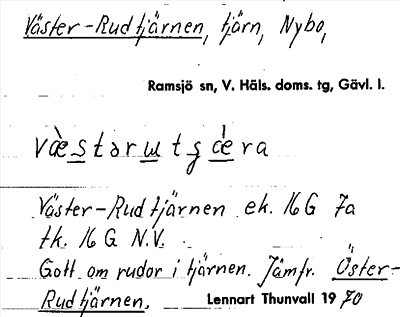 Väster-Rudtjärnen, tjärn, Nybo,
Ramsjö sn, V. Häls. doms. tg, Gävl. l.
væ̀stərutgǽra
Väster-Rudtjärnen ek. 16 G 7a
tk. 16 G N.V.
Gott om rudor i tjärnen. Jämfr. Öster-
Rudtjärnen.
Lennart Thunvall 1970